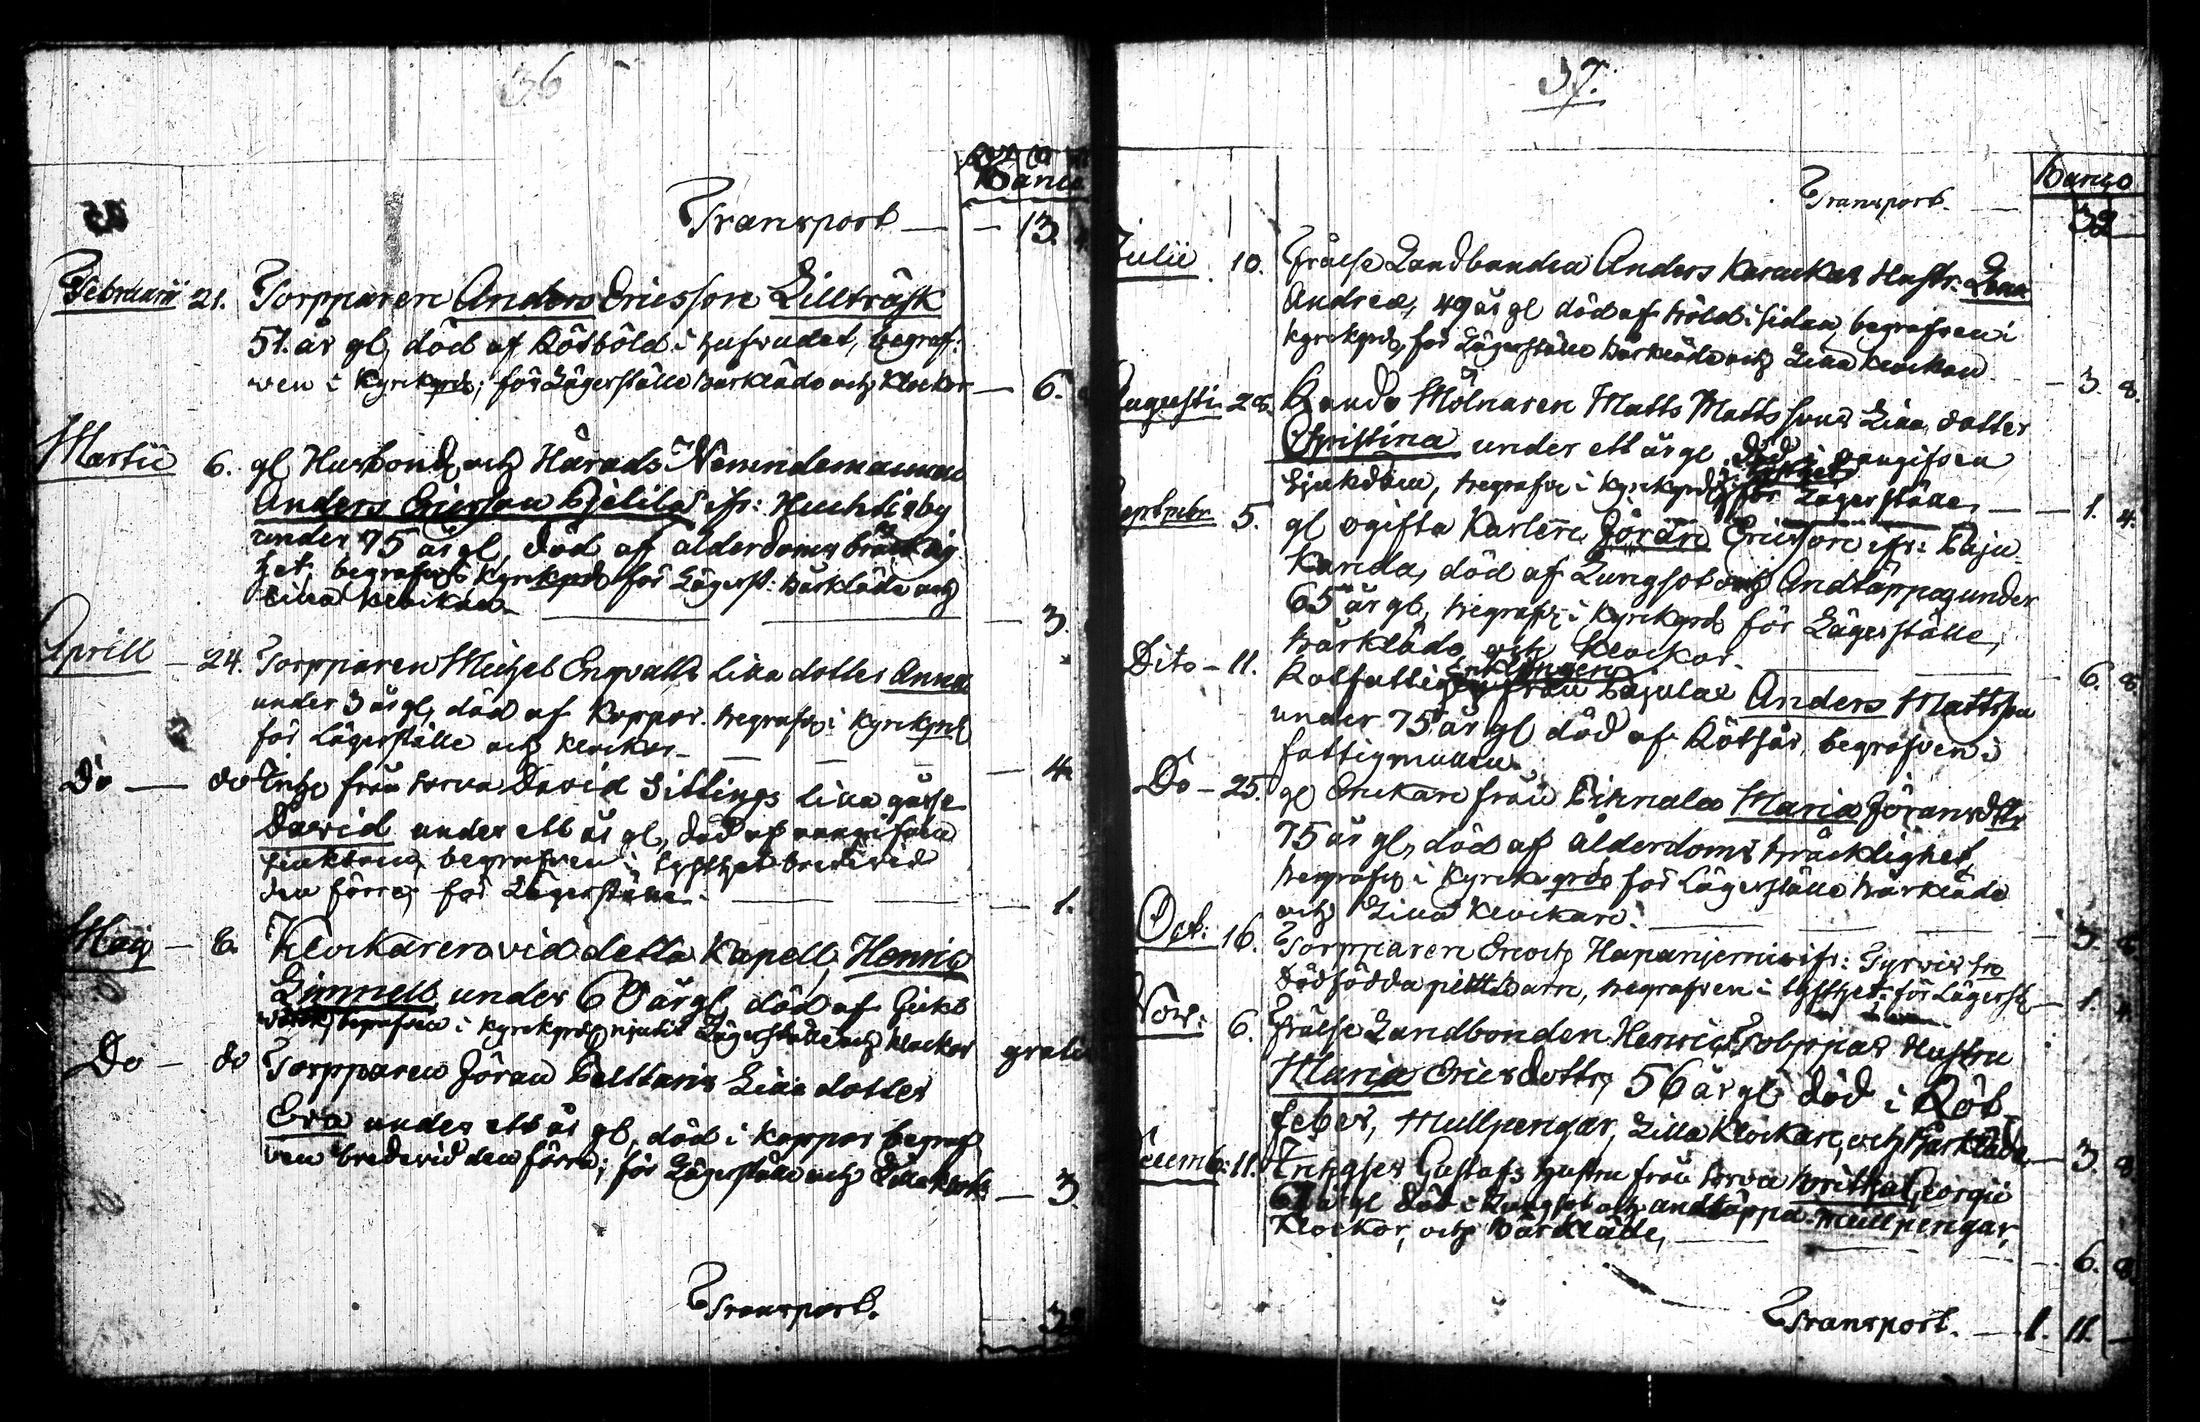 36
Banco
Transport — — 13.
Februarii 21. Torpparen Anders Ericsson Lillträsk
51. år gl, död af Rötböld i hufvudet, begraf-
ven i Kyrckgrd; för Lägerställe bårkläde och Klockor — 6.
Martii 6. gl Husbond och Härads Nemndemannen
Anders Ericsson Kjelilä ifr: Huchtisby
under 75 år gl, död af ålderdoms bräcklig
het, begrafven Kyrckgrd för Lägerst: bårkläde och
Lilla klockan — 3.
Aprill — 24. Torpparen Michel Enqvalls Lilla dotter Anna
under 3 år gl, död af Koppor. begrafv: i Kyrckgrd
för Lägerställe och klockor — 4.
Do — do Inhs från torva David Sittings lilla gåsse
David under ett år gl, död af oangifven
siukdom, begrafven i bredevid
den förre; för Lägerställe — 1.
Maij — 8. Klockaren vid detta Kapell, Henric
Limnell under 60 år gl, död af Gickt
värck, begrafven i Kyrckgrd, njutit Lägerställe och klockor gratis
Do — do Torpparen Jöran Lilla dotter
Eva under ett år gl, död i Koppor begraf
ven bredevid den förra; för Lägerställe och Lilla klock: — 3.
Transport. 32
37.
Banco
Transport. — 32
Julii 10. Frälse Landbonden Anders Hustr:
Andreæ, 49 år gl död af böld i sidan, begrafven i
Kyrckgrd, för Lägerställe bårkläde och Lilla klockan — 3. 8.
Augusti 28. Mölnaren Matts Mattssons Lilla dotter
Christina under ett år gl död i oangifven
Siukdom, begrafv: i Kyrckgrd för Lägerställe, — 1. 4.
Septembr. 5. gl ogifta Karlen Jöran Ericsson ifr:
död af Lungsot och Andtäppa, under
65 år gl, begrafv: i Kyrckgrd för Lägerställe,
bårkläde och klockor. — 6. 8
Dito — 11. Rotfattig Enklingen från Anders Mattsson
under 75 år gl död af Rötsår, begrafven i
fattigmullen.
Do — 25. gl Enckan från Maria Jöransdttr
75 år gl, död af ålderdoms bräcklighet,
begrafv: i Kyrckogrd för Lägerställe bårkläde
och Lilla klockan. — 3. 8
Oct: 16. Torpparen Enoch Hapanjemi ifr: Tyrvis
dödfödda pilttbarn, begrafven i för Lägerst — 1. 4.
Nov: 6. Frälse Landbonden Henric Hustru
Maria Ericsdottr, 56 år gl död i Röt
feber, Mullpengar, Lilla klockan, och Bårkläde — 3. 8
Decemb: 11. Inhyses Gustafs hustru från torva Brithа Georgii
år gl död i Lungsot och andtäppa. Mullpengar,
Klockor, och Bårkläde, — 6. 8.
Transport. — 1. 11. —